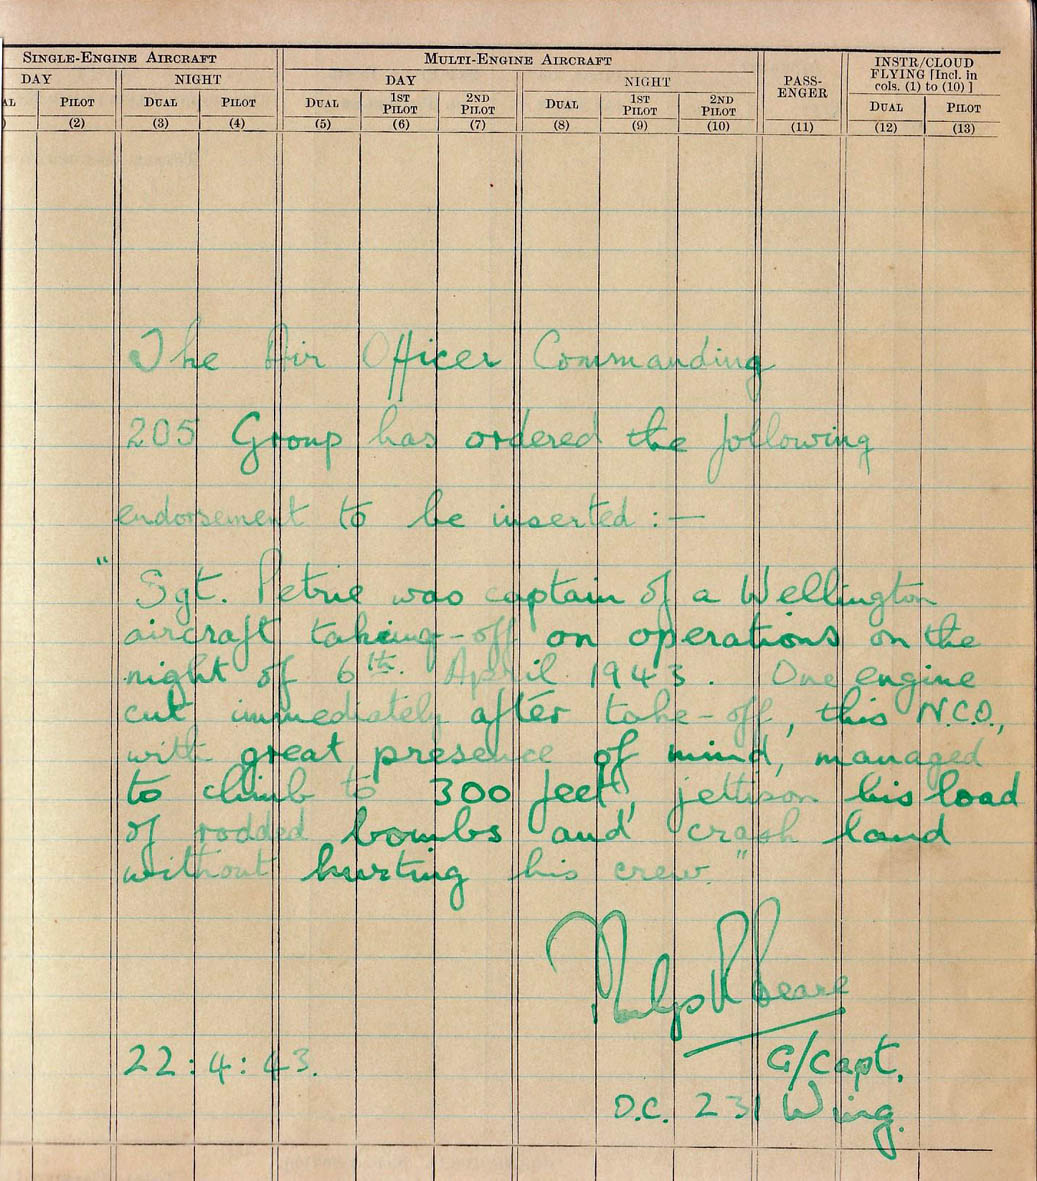 SINGLE-ENGINE AIRCRAFT MULTI-ENGINE AIRCRAFT INSTR/CLOUD FLYING [Incl. in cols. (1) to (10) ]
DAY NIGHT DAY NIGHT PASS-ENGER
AL PILOT DUAL PILOT DUAL 1ST PILOT 2ND PILOT DUAL 1ST PILOT 2ND PILOT DUAL PILOT
) (2) (3) (4) (5) (6) (7) (8) (9) (10) (11) (12) (13)
The Air Officer Commanding
205 Group has ordered the following
endorsement to be inserted : —
" Sgt. Petrie was captain of a Wellington
aircraft taking-off on operations on the
night of 6th. April 1943. One engine
cut immediately after take-off, this N.C.O.,
with great presence of mind, managed
to climb to 300 feet, jettison his load
of rodded bombs and crash land
without hurting his crew."
22:4:43.
G/Capt,
O.C. 231 Wing.